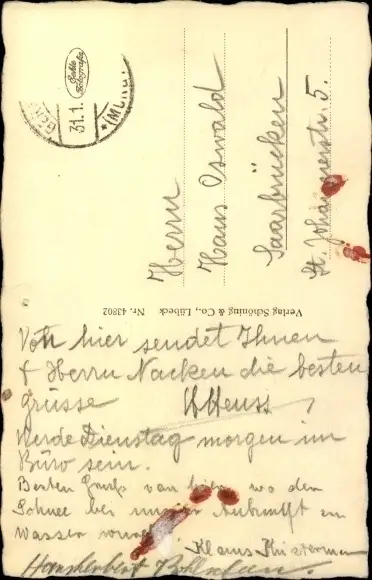 Echte
Fotografie
31.1.
Herrn
Hans Oswald
Saarbrücken
St. Johannerstr. 5.
Verlag Schöning & Co., Lübeck Nr. 43802
Von hier sendet Ihnen
& Herrn Nacken die besten
Grüsse HHeuss
Werde Dienstag morgen im
Büro sein.
Besten Gruß von hier, wo der
Schnee bei unserer Ankunft zu
Wasser wurde
Klaus
Hansherbert